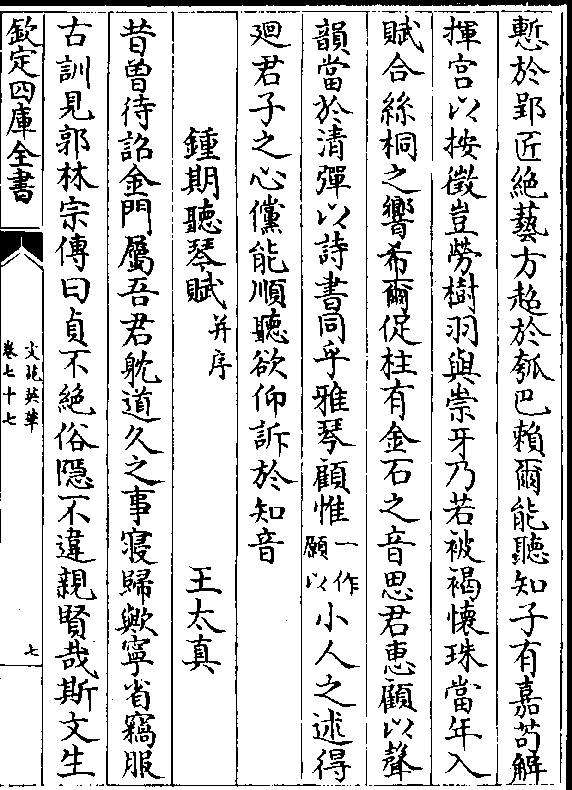 慙於郢匠絶藝方超於瓠巴賴爾能聽知子有嘉茍解
揮宫以按徵豈勞樹羽與崇牙乃若被褐懷珠當年入
賦合絲桐之響希爾促柱有金石之音思君恵顧以聲
韻當於清彈以詩書同乎雅琴顧惟一作願以小人之述得
廻君子之心儻能順聽欲仰訴於知音
鍾期聽琴賦并序 王太真
昔曾待詔金門屬吾君躭道久之事寝歸歟寧省竊服
古訓見郭林宗傳曰貞不絶俗隱不違親賢哉斯文生
欽定四庫全書
文苑英華
卷七十七
七